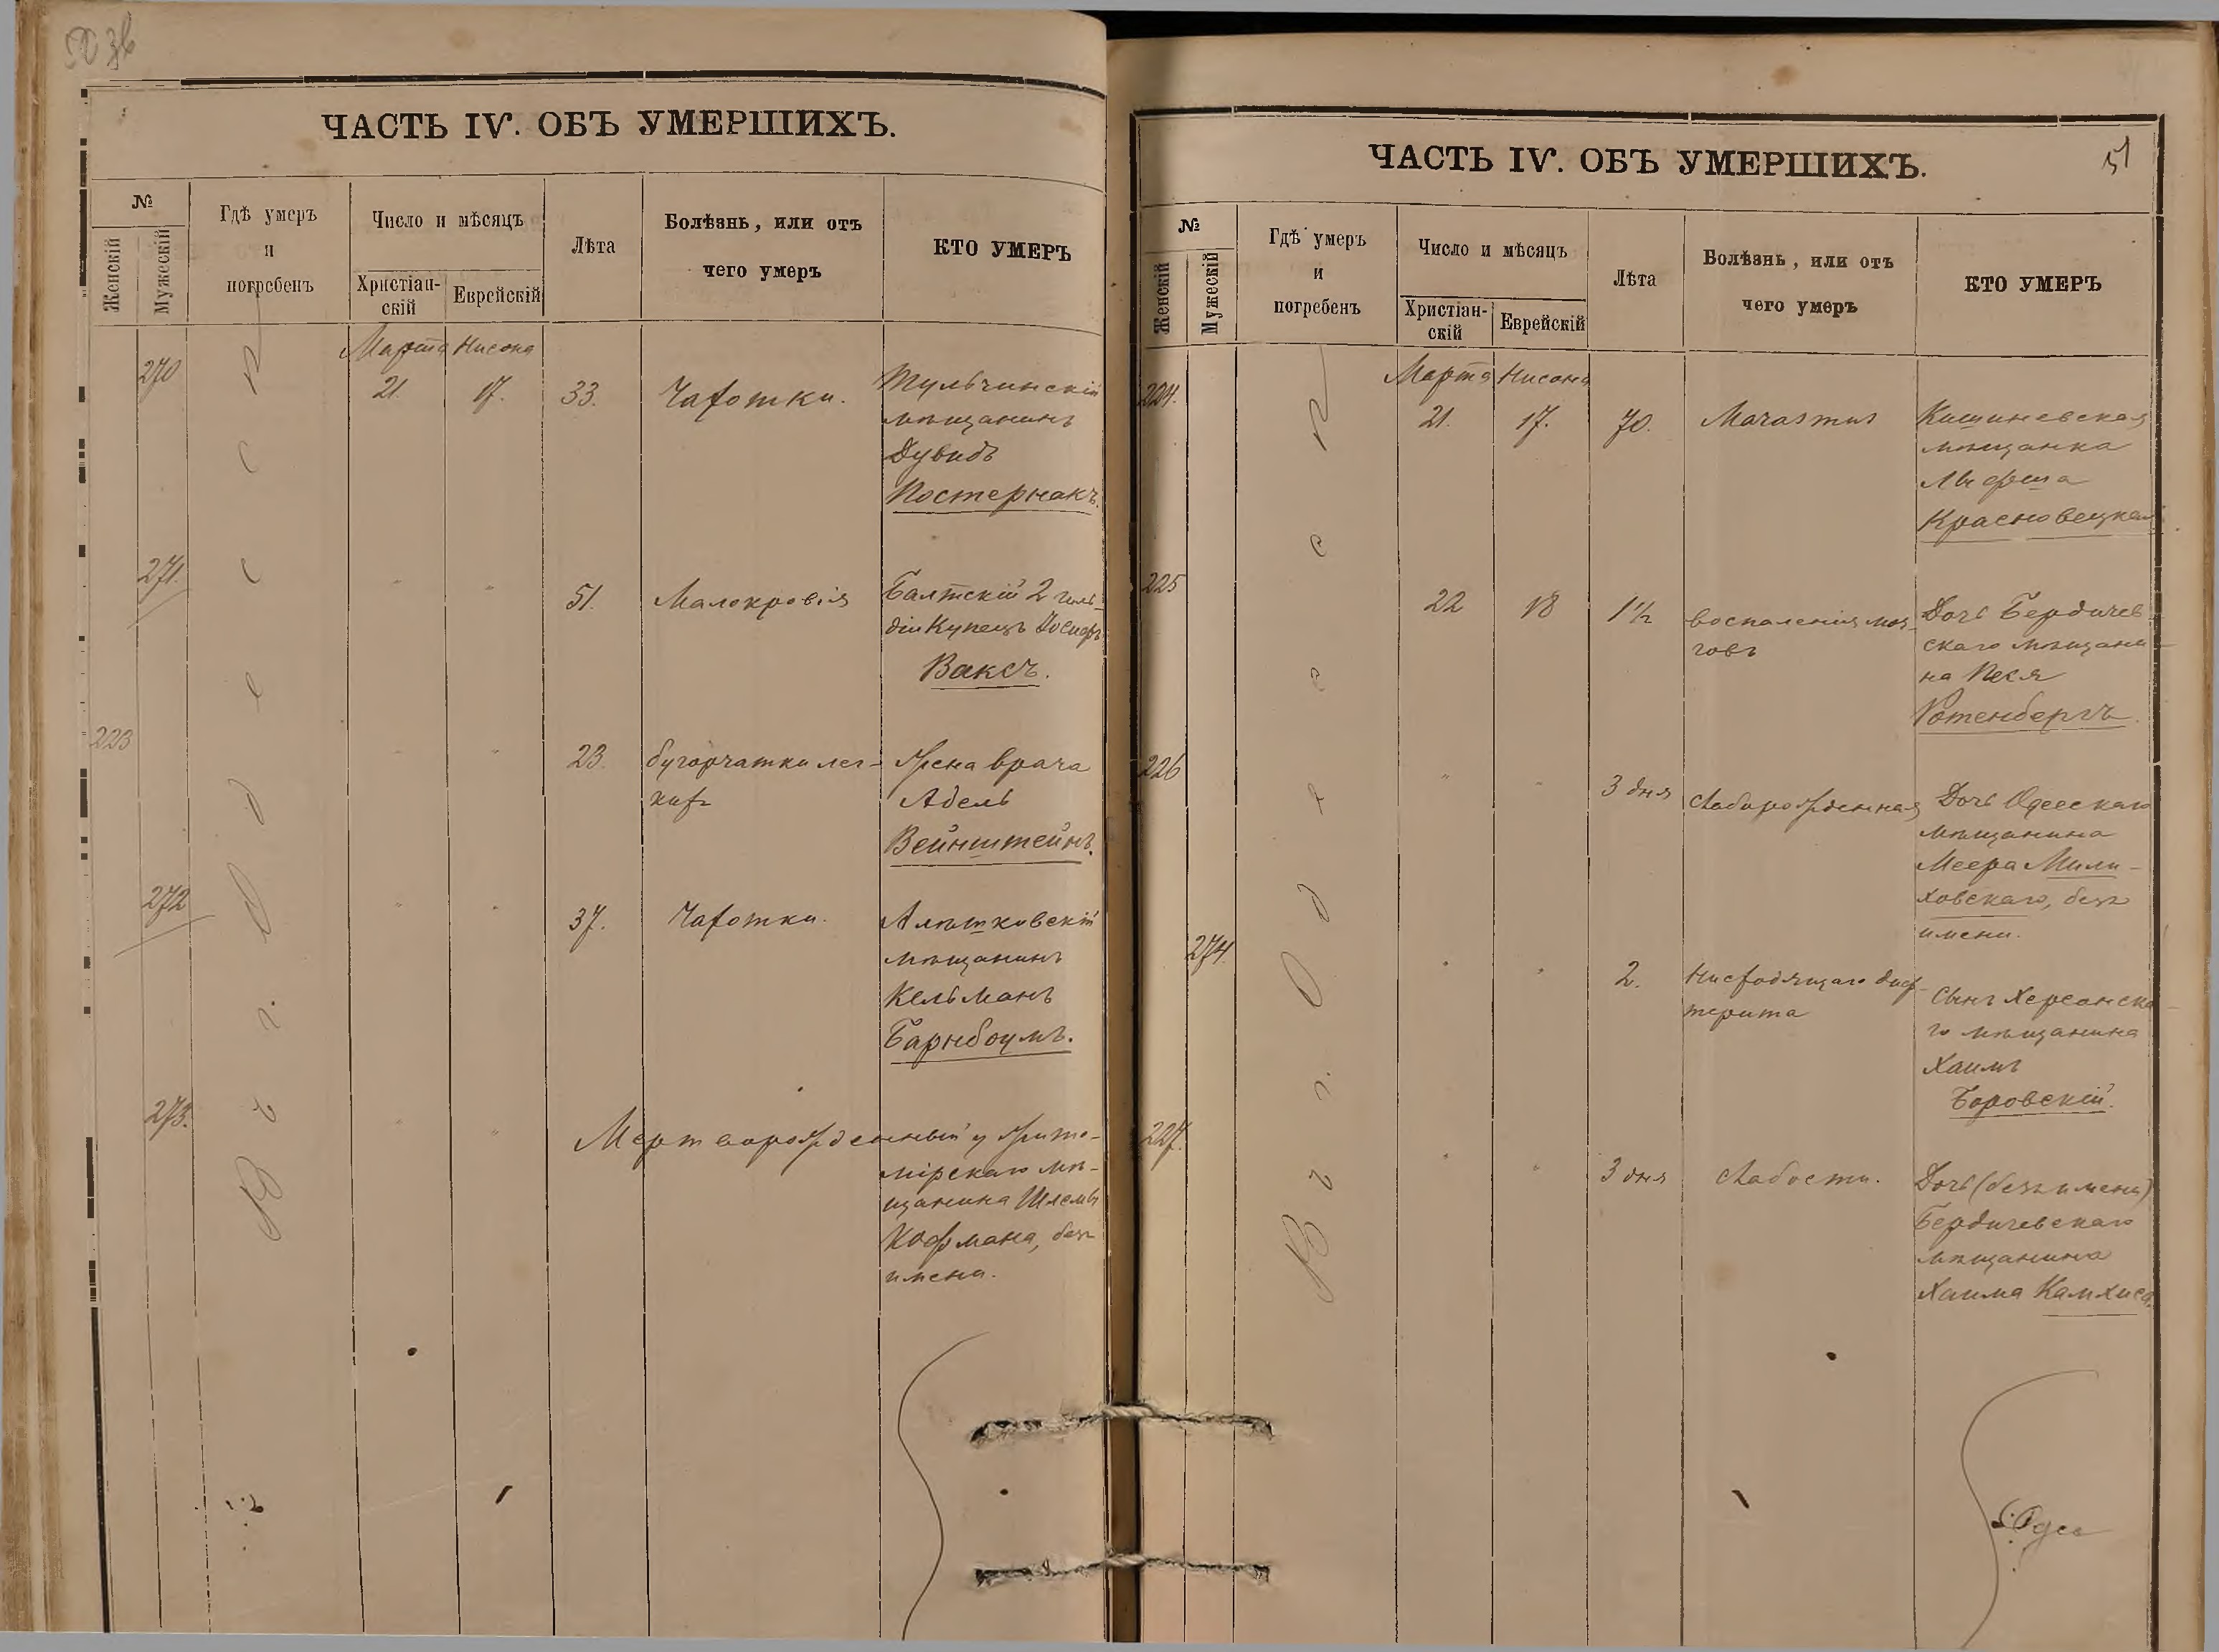 ЧАСТЬ IV. ОБЪ УМЕРШИХЪ.
№
Женскій
Мужескій
Гдѣ умеръ
и
погребенъ
Число и мѣсяцъ
Христіан-
скій
Еврейскій
Лѣта
Болѣзнь, или отъ
чего умеръ
КТО УМЕРЪ
Въ г. Одессѣ
Марта Нисона
270 21. 17. 33. Чахотки. Тульчинскій
мѣщанинъ
Дувидъ
Постернакъ.
271. " " 51. Малокровія Балтскій 2 гиль-
діи Купецъ Іосифъ
Ваксъ.
223 " " 23. бугорчатки лег- Жена врача
кихъ Адель
Вейнштейнъ.
272 " " 37. Чахотки.
мѣщанинъ
Кельманъ
Барнбоумъ.
273. " " Мертворожденный у Жито-
мірскаго мѣ-
щанина Шлемы
Кофмана, безъ
имени.
ЧАСТЬ IV. ОБЪ УМЕРШИХЪ.
51
№
Женскій
Мужескій
Гдѣ умеръ
и
погребенъ
Число и мѣсяцъ
Христіан-
скій
Еврейскій
Лѣта
Болѣзнь, или отъ
чего умеръ
КТО УМЕРЪ
Въ г. Одессѣ
Марта Нисона
224. 21. 17. 70. Marasmus Кишиневская
мѣщанка
Красновецкая
225 22 18 1½ воспаленія моз- Дочь Бердичев-
говъ скаго мѣщани-
на Песя
Ротенбергъ.
226 " " 3 дня Слаборожденная Дочь Одесскаго
мѣщанина
Меера Мили-
ховскаго, безъ
имени.
274. " " 2. Нисходящаго диф-
терита Сынъ Херсонска-
го мѣщанина
Хаимъ
Боровскій.
227. " " 3 дня Слабости. Дочь (безъ имени)
Бердичевскаго
мѣщанина
Хаима Камхиса.